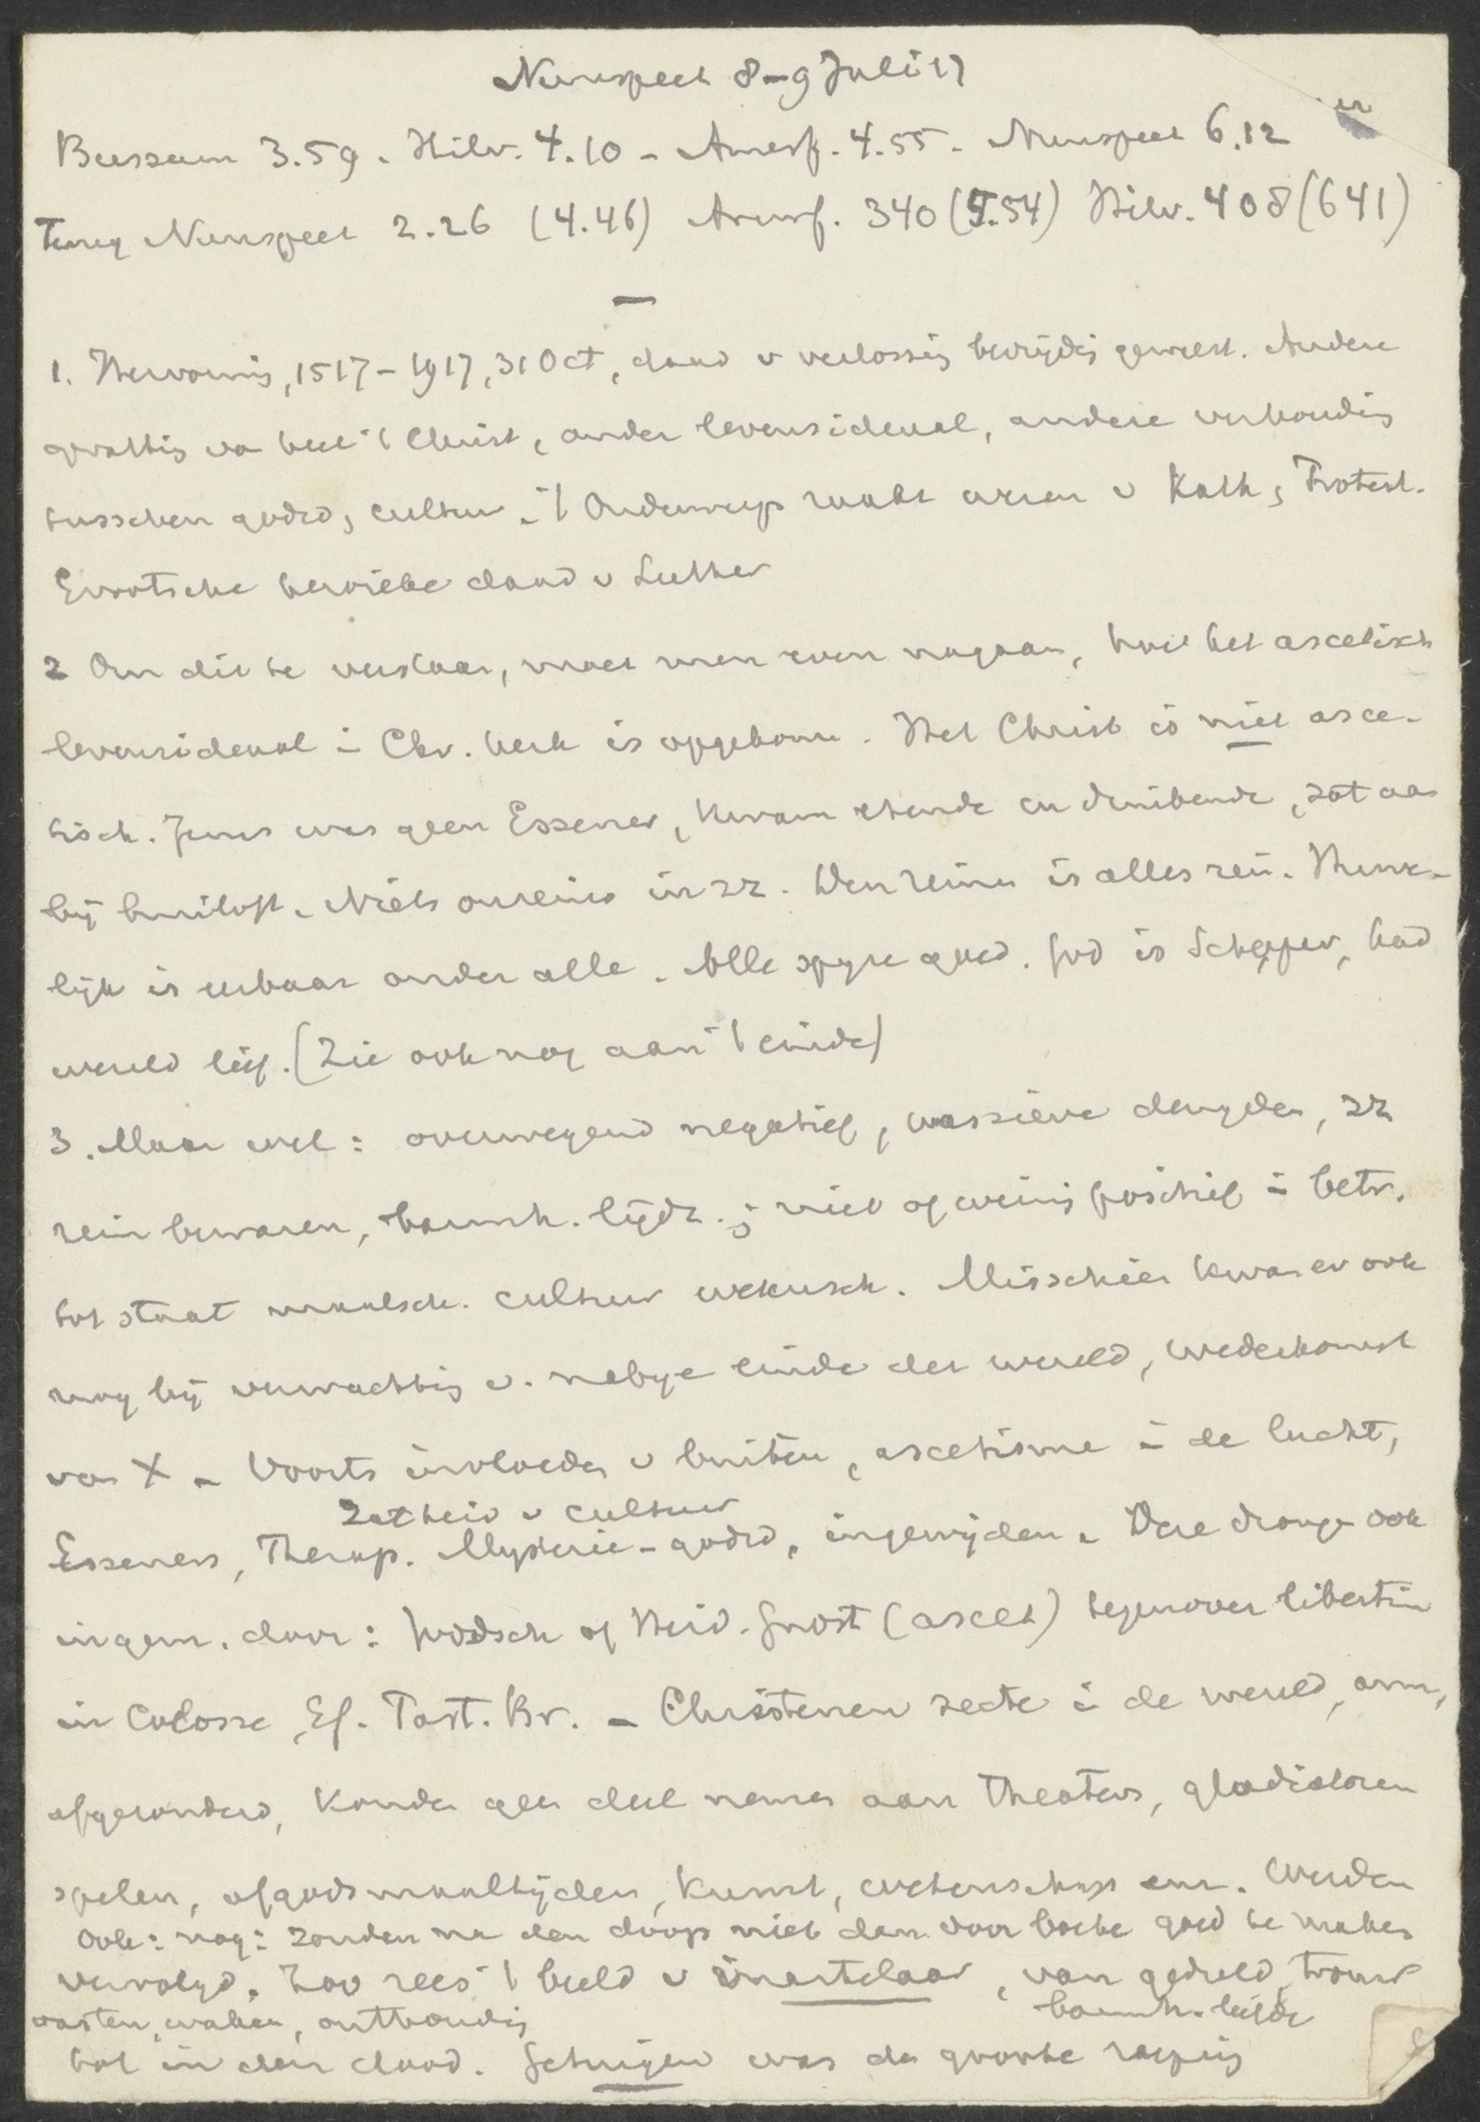 Nunspeet 8-9 Juli 17
Bussum 3.59. Hilv. 4.10 - Amersf. 4.55. Nunspeet 6.12
Terug Nunspeet 2.26 (4.46) Amersf. 340 (5.54) Hilv. 408 (641)
1. Hervorming, 1517-1917, 31 Oct, daad v verlossing bevrijding geweest. Andere
opvatting va heel 't Christ, ander levensideaal, andere verhouding
tusschen godsd, cultuur. 't Onderwerp raakt wezen v Kath, Protest.
Grootsche heroieke daad v Luther
2 Om dit te verstaan, moet men even nagaan, hoe het ascetisch
levensideaal i Chr. kerk is opgekomen. Het Christ is niet asce-
tisch. Jezus was geen Essener, kwam etende en drinkende, zat aan
bij bruiloft. Niets onreins in zz. Den reinen is alles rein. Huwe-
lijk is eerbaar onder alle. Alle spijze goed. God is Schepper, had
wereld lief. (Zie ook nog aan 't einde)
3. Maar wel: overwegend negatief, passieve deugden, zz
rein bewaren, barmh. lijdz.; niet of weinig positief i betr.
tot staat maatsch. cultuur wetensch. Misschien kwam er ook
nog bij verwachting v. nabije einde der wereld, wederkomst
van X - Voorts invloeden v buiten, ascetisme i de lucht,
zatheid v cultuur
Esseners, Therap. Mysterie-godsd, ingewijden. Deze drongen ook
in gem. door: Joodsch of Heid. Gnost (ascet) tegenover libertin
in Colosse, Ef. Past. Br. - Christenen secte i de wereld, arm,
afgezonderd, konden geen deel nemen aan theaters, gladiatoren
spelen, afgodsmaaltijden, kunst, wetenschap enz. Werden
ook: nog: zonden na den doop niet dan door boete goed te maken
vervolgd. Zoo rees 't beeld v martelaar, van geduld, trouw
vasten, waken, onthouding barmh. liefde
tot in den dood. Getuigen was de groote roeping